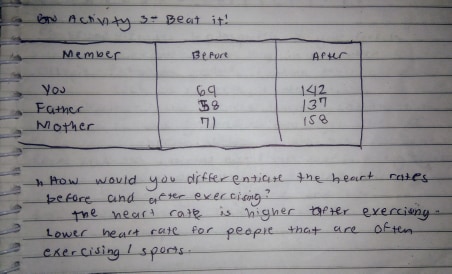 Activity 3- Beat it!
Member Before After
You 69 142
Father 58 137
Mother 71 158
1. How would you differentiate the heart rates
before and after exercising?
The heart rate is higher after exercising.
Lower heart rate for people that are often
exercising / sports.